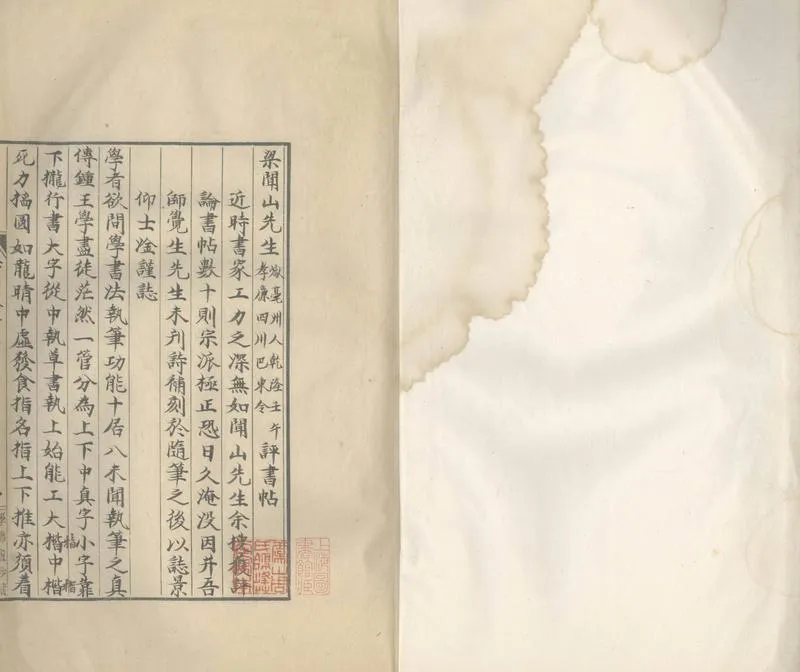 梁聞山先生巘亳州人乾隆壬午孝廉四川巴東令評書帖
近時書家工力之深無如聞山先生余搜獲評
論書帖數十則宗派極正恐日久淹没因并吾
師覺生先生未刋詩補刻於隨筆之後以誌景
仰士淦謹誌
學者欲問學書法執筆功能十居八未聞執筆之真
傳鍾王學盡徒茫然一管分為上下中真字小字靠
下攏行書大字從中執草書執上始能工大楷中楷
死力搯圓如龍睛中虛發食指名指上下推亦須着
上海圖書館藏